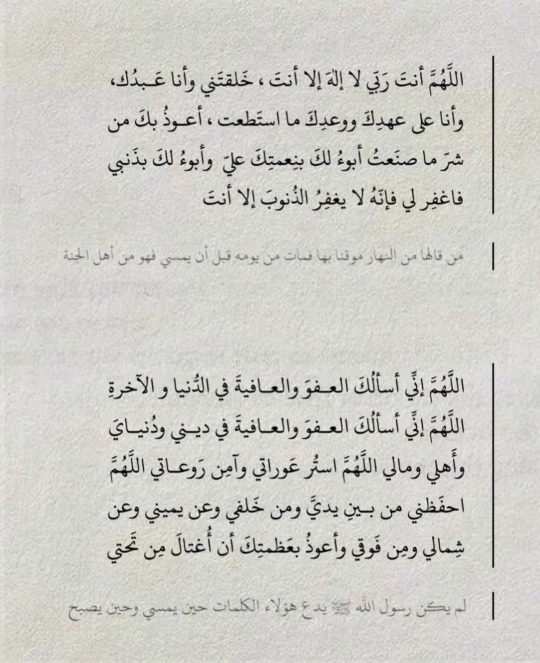 اللَّهُمَّ أنتَ رَبّي لا إلهَ إلا أنتَ ، خَلقتَني وأنا عَبدُك،
وأنا على عهدِكَ ووعدِكَ ما استَطعت ، أعوذُ بكَ من
شرّ ما صنَعتُ أبوءُ لكَ بنِعمتِكَ عليّ وأبوءُ لكَ بذَنبي
فاغفِر لي فإنّهُ لا يغفِرُ الذُنوبَ إلا أنتَ
من قالها من النهار موقنا بها فمات من يومه قبل أن يمسي فهو من أهل الجنة
اللَّهُمَّ إنِّي أسألُكَ العفوَ والعافيةَ في الدُّنيا و الآخرةِ
اللَّهُمَّ إنِّي أسألُكَ العفوَ والعافيةَ في ديني ودُنيايَ
وأَهلي ومالي اللَّهُمَّ استُر عَوراتي وآمِن رَوعاتي اللَّهُمَّ
احفَظني من بينِ يديَّ ومن خَلفي وعن يميني وعن
شِمالي ومِن فَوقي وأعوذُ بعَظمتِكَ أن أُغتالَ مِن تَحتي
لم يكن رسول الله ﷺ يدع هؤلاء الكلمات حين يمسي وحين يصبح